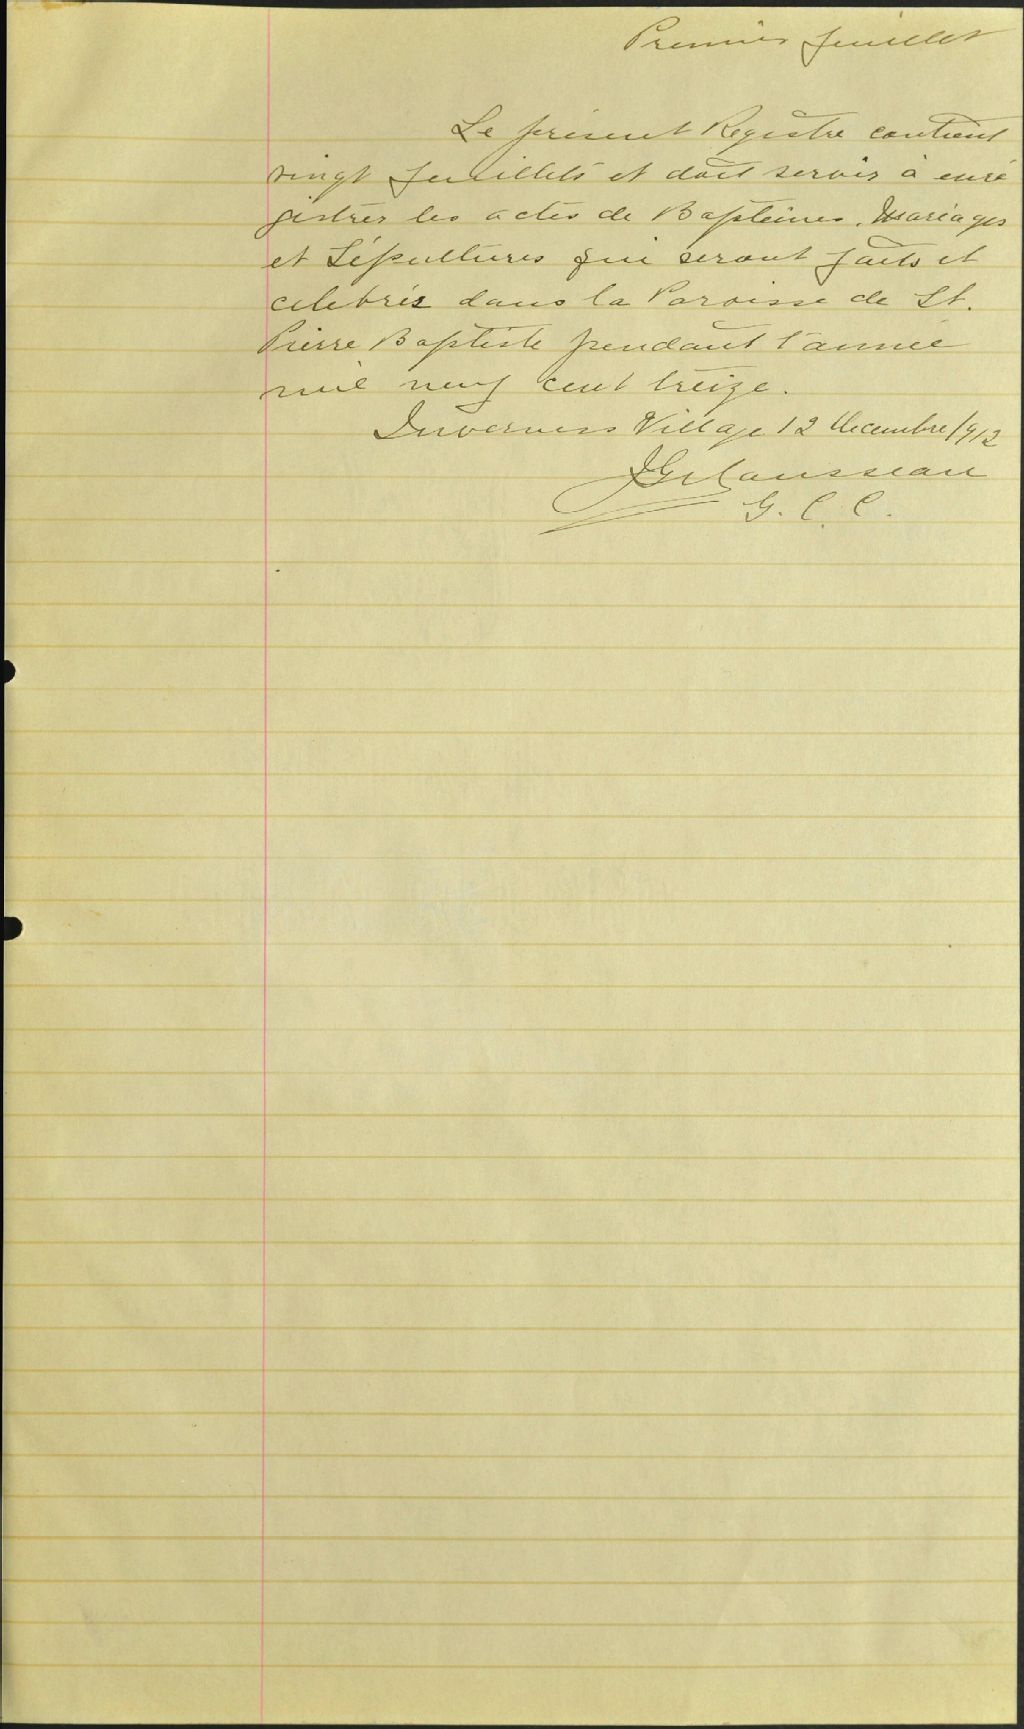 Premier feuillet
Le présent Registre contient
vingt feuillets et doit servir à enre
gistrer les actes de Baptêmes, Mariages
et Sépultures qui seront faits et
celebrés dans la Paroisse de St.
Pierre Baptiste pendant l'année
mil neuf cent treize.
Inverness Village 12 Decembre 1912
Rousseau
G. C. C.